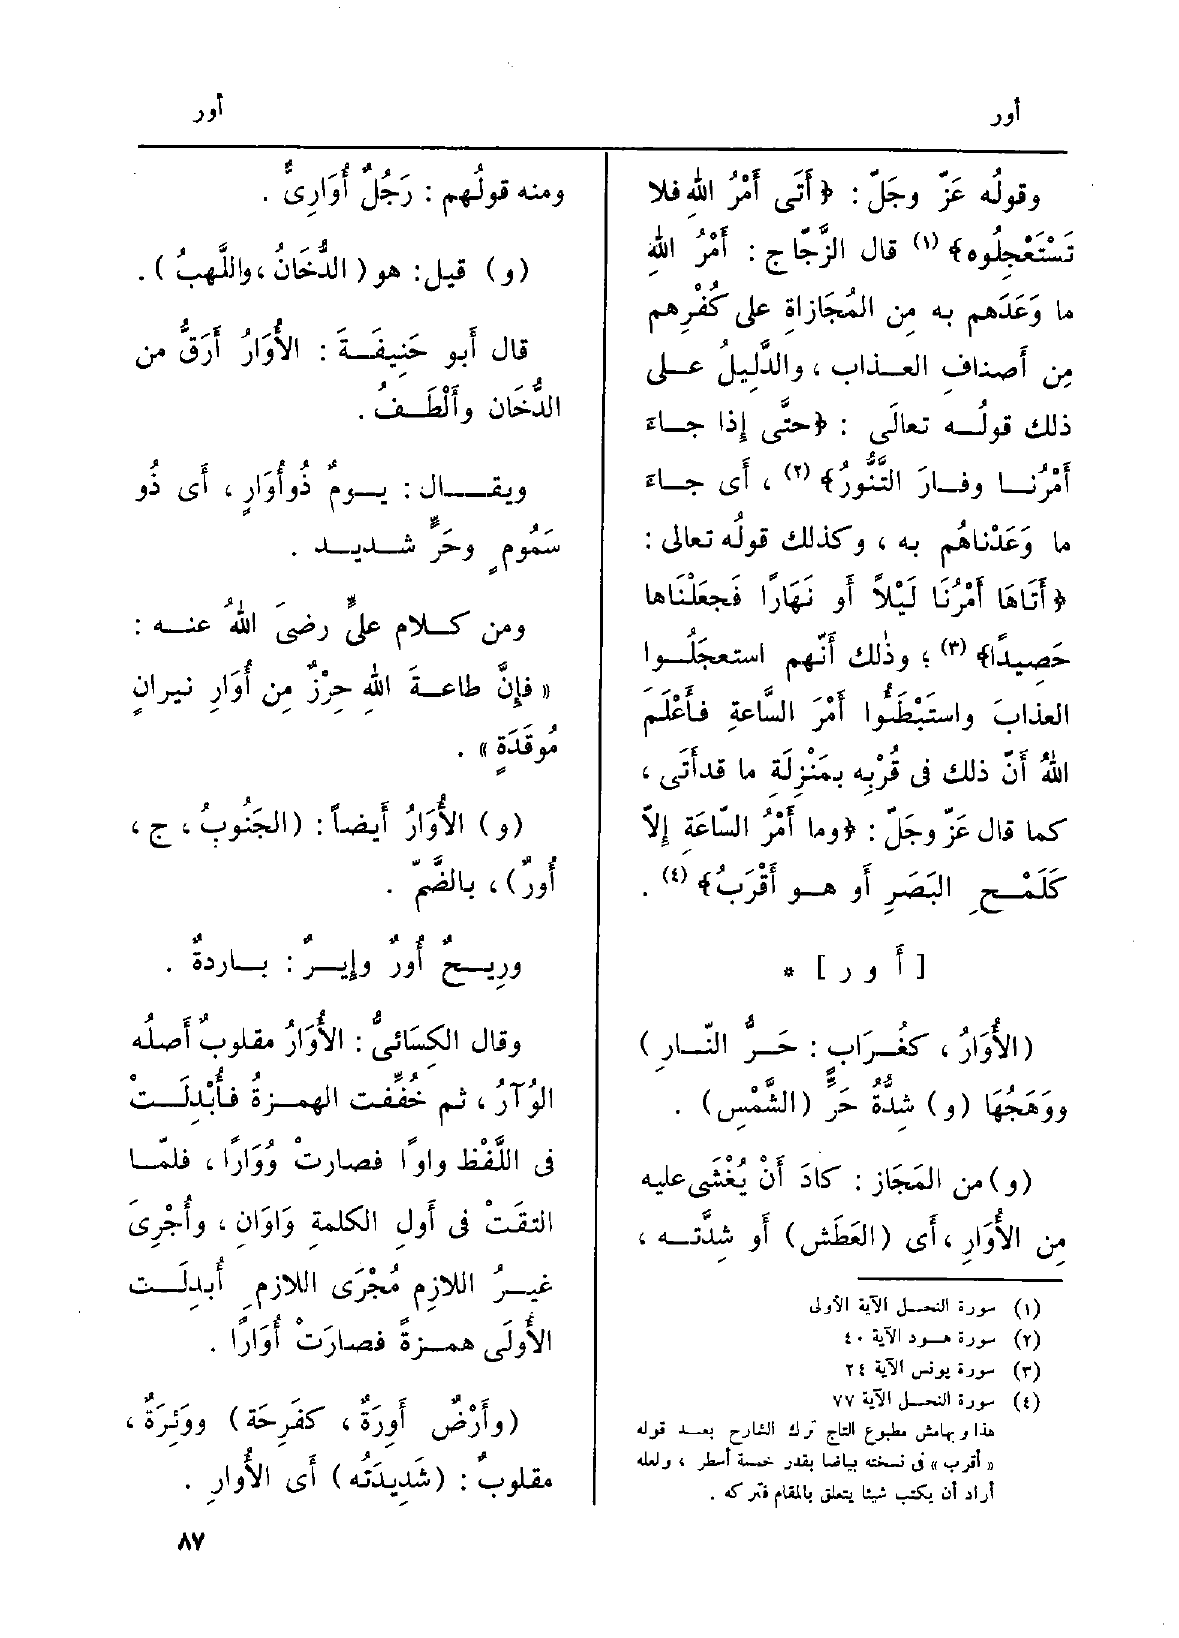 أور
أور
وقولُه عَزّ وجَلّ : ﴿أَتَى أَمْرُ اللهِ فلا
تَسْتَعْجِلُوه﴾ (١) قال الزَّجّاج : أَمْرُ اللهِ
ما وَعَدَهم به مِن المُجَازاةِ على كُفْرِهم
مِن أَصنافِ العـذاب ، والدَّلِيلُ عـلى
ذلك قولُـه تعالَى : ﴿حتَّى إِذا جـاءَ
أَمْرُنـا وفـارَ التَّنُّورُ﴾ (٢) ، أَى جـاءَ
ما وَعَدْناهُم به ، وكذلك قولُه تعالى :
﴿أَتَاهَا أَمْرُنَا لَيْلاً أَو نَهَارًا فَجعَلْنَاها
حَصِيدًا﴾ (٣) ؛ وذٰلك أَنّهم استعجَلُـوا
العذابَ واستَبْطَئُوا أَمْرَ السَّاعةِ فأَعْلَمَ
اللهُ أَنّ ذلك فى قُرْبِه بمَنْزِلَةِ ما قدأَتَى ،
كما قال عَزّ وجَلّ : ﴿وما أَمْرُ السّاعَةِ إِلاّ
كَلَمْـحِ البَصَرِ أَو هـو أَقْرَبُ﴾ (٤) .
[ أ و ر ] *
(الأُوَارُ ، كغُـرَابٍ : حَـرُّ النّـارِ )
ووَهَجُهَا (و) شِدَّةُ حَرِّ (الشَّمْسِ) .
(و) من المَجَاز : كادَ أَنْ يُغْشَى عليه
مِن الأُوَارِ ، أَى (العَطَش) أَو شِدَّتـه ،
(١) سورة النحـل الآية الأولى
(٢) سورة هـود الآية ٤٠
(٣) سورة يونس الآية ٢٤
(٤) سورة النحـل الآية ٧٧
هذا وبهامش مطبوع التاج ترك الشارح بعـد قوله
« أقرب » فى نسخته بياضا بقدر خمسة أسطر ، ولعله
أراد أن يكتب شيئا يتعلق بالمقام فتركه .
ومنه قولُهم : رَجُلٌ أُوَارِىٌّ .
(و) قيل: هو ( الدُّخَانُ ، واللَّهبُ ) .
قال أَبو حَنِيفَـة : الأُوَارُ أَرَقُّ من
الدُّخَان وأَلْطَـفُ .
ويقـــال : يـومٌ ذُوأُوَارٍ ، أَى ذُو
سَمُومٍ وحَرٍّ شـديـد .
ومن كـلام علىٍّ رضىَ اللهُ عنـه :
« فإِنَّ طاعـةَ اللهِ حِرْزٌ مِن أُوَارِ نيرانٍ
مُوقَدَةٍ » .
(و) الأُوَارُ أَيضاً : (الجَنُوبُ ، ج ،
أُورٌ) ، بالضَّمّ .
ورِيـحٌ أُورٌ وإِيـرٌ : بـاردةٌ .
وقال الكِسَائىُّ : الأُوَارُ مقلوبٌ أَصلُه
الوُآرُ ، ثم خُفِّفت الهمـزةُ فأُبْدلَـتْ
فى اللَّفْظ واوًا فصارتْ وُوَارًا ، فلمّـا
التقَتْ فى أَول الكلمةِ وَاوَانِ ، وأُجْرِىَ
غيـرُ اللازِمِ مُجْرَى اللازمِ أُبدِلَـت
الأُولَى همـزةً فصارَتْ أُوَارًا .
(وأَرْضٌ أَوِرَةٌ ، كفَرِحَة) ووَئِرَةٌ ،
مقلوبٌ : (شَدِيدَتُه) أَى الأُوارِ .
٨٧